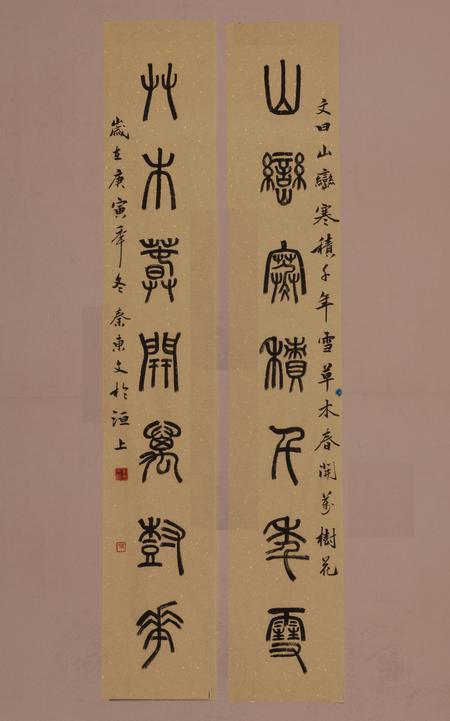 文曰山巒寒積千年雪草木春開萬樹花
山巒寒積千年雪
艸木萅開萬尌華
歲在庚寅年冬秦東文於洹上